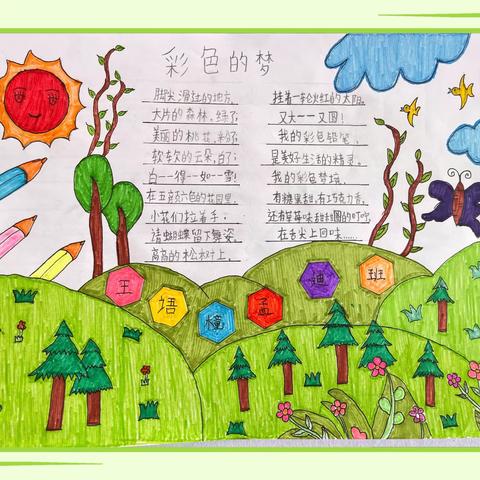 彩色的梦
脚尖滑过的地方，
大片的森林，绿了；
美丽的桃花，粉了；
软软的云朵，白了；
白——得——如——雪！
在五颜六色的花园里，
小花们拉着手；
请蝴蝶留下舞姿。
高高的松树上，
挂着一轮火红的太阳。
又大——又圆！
我的彩色铅笔，
是美好生活的精灵。
我的彩色梦境，
有糖果甜，有巧克力香，
还有草莓味甜甜圈的叮咛，
在舌尖上回味……
王
语
橦
孟
迪
班